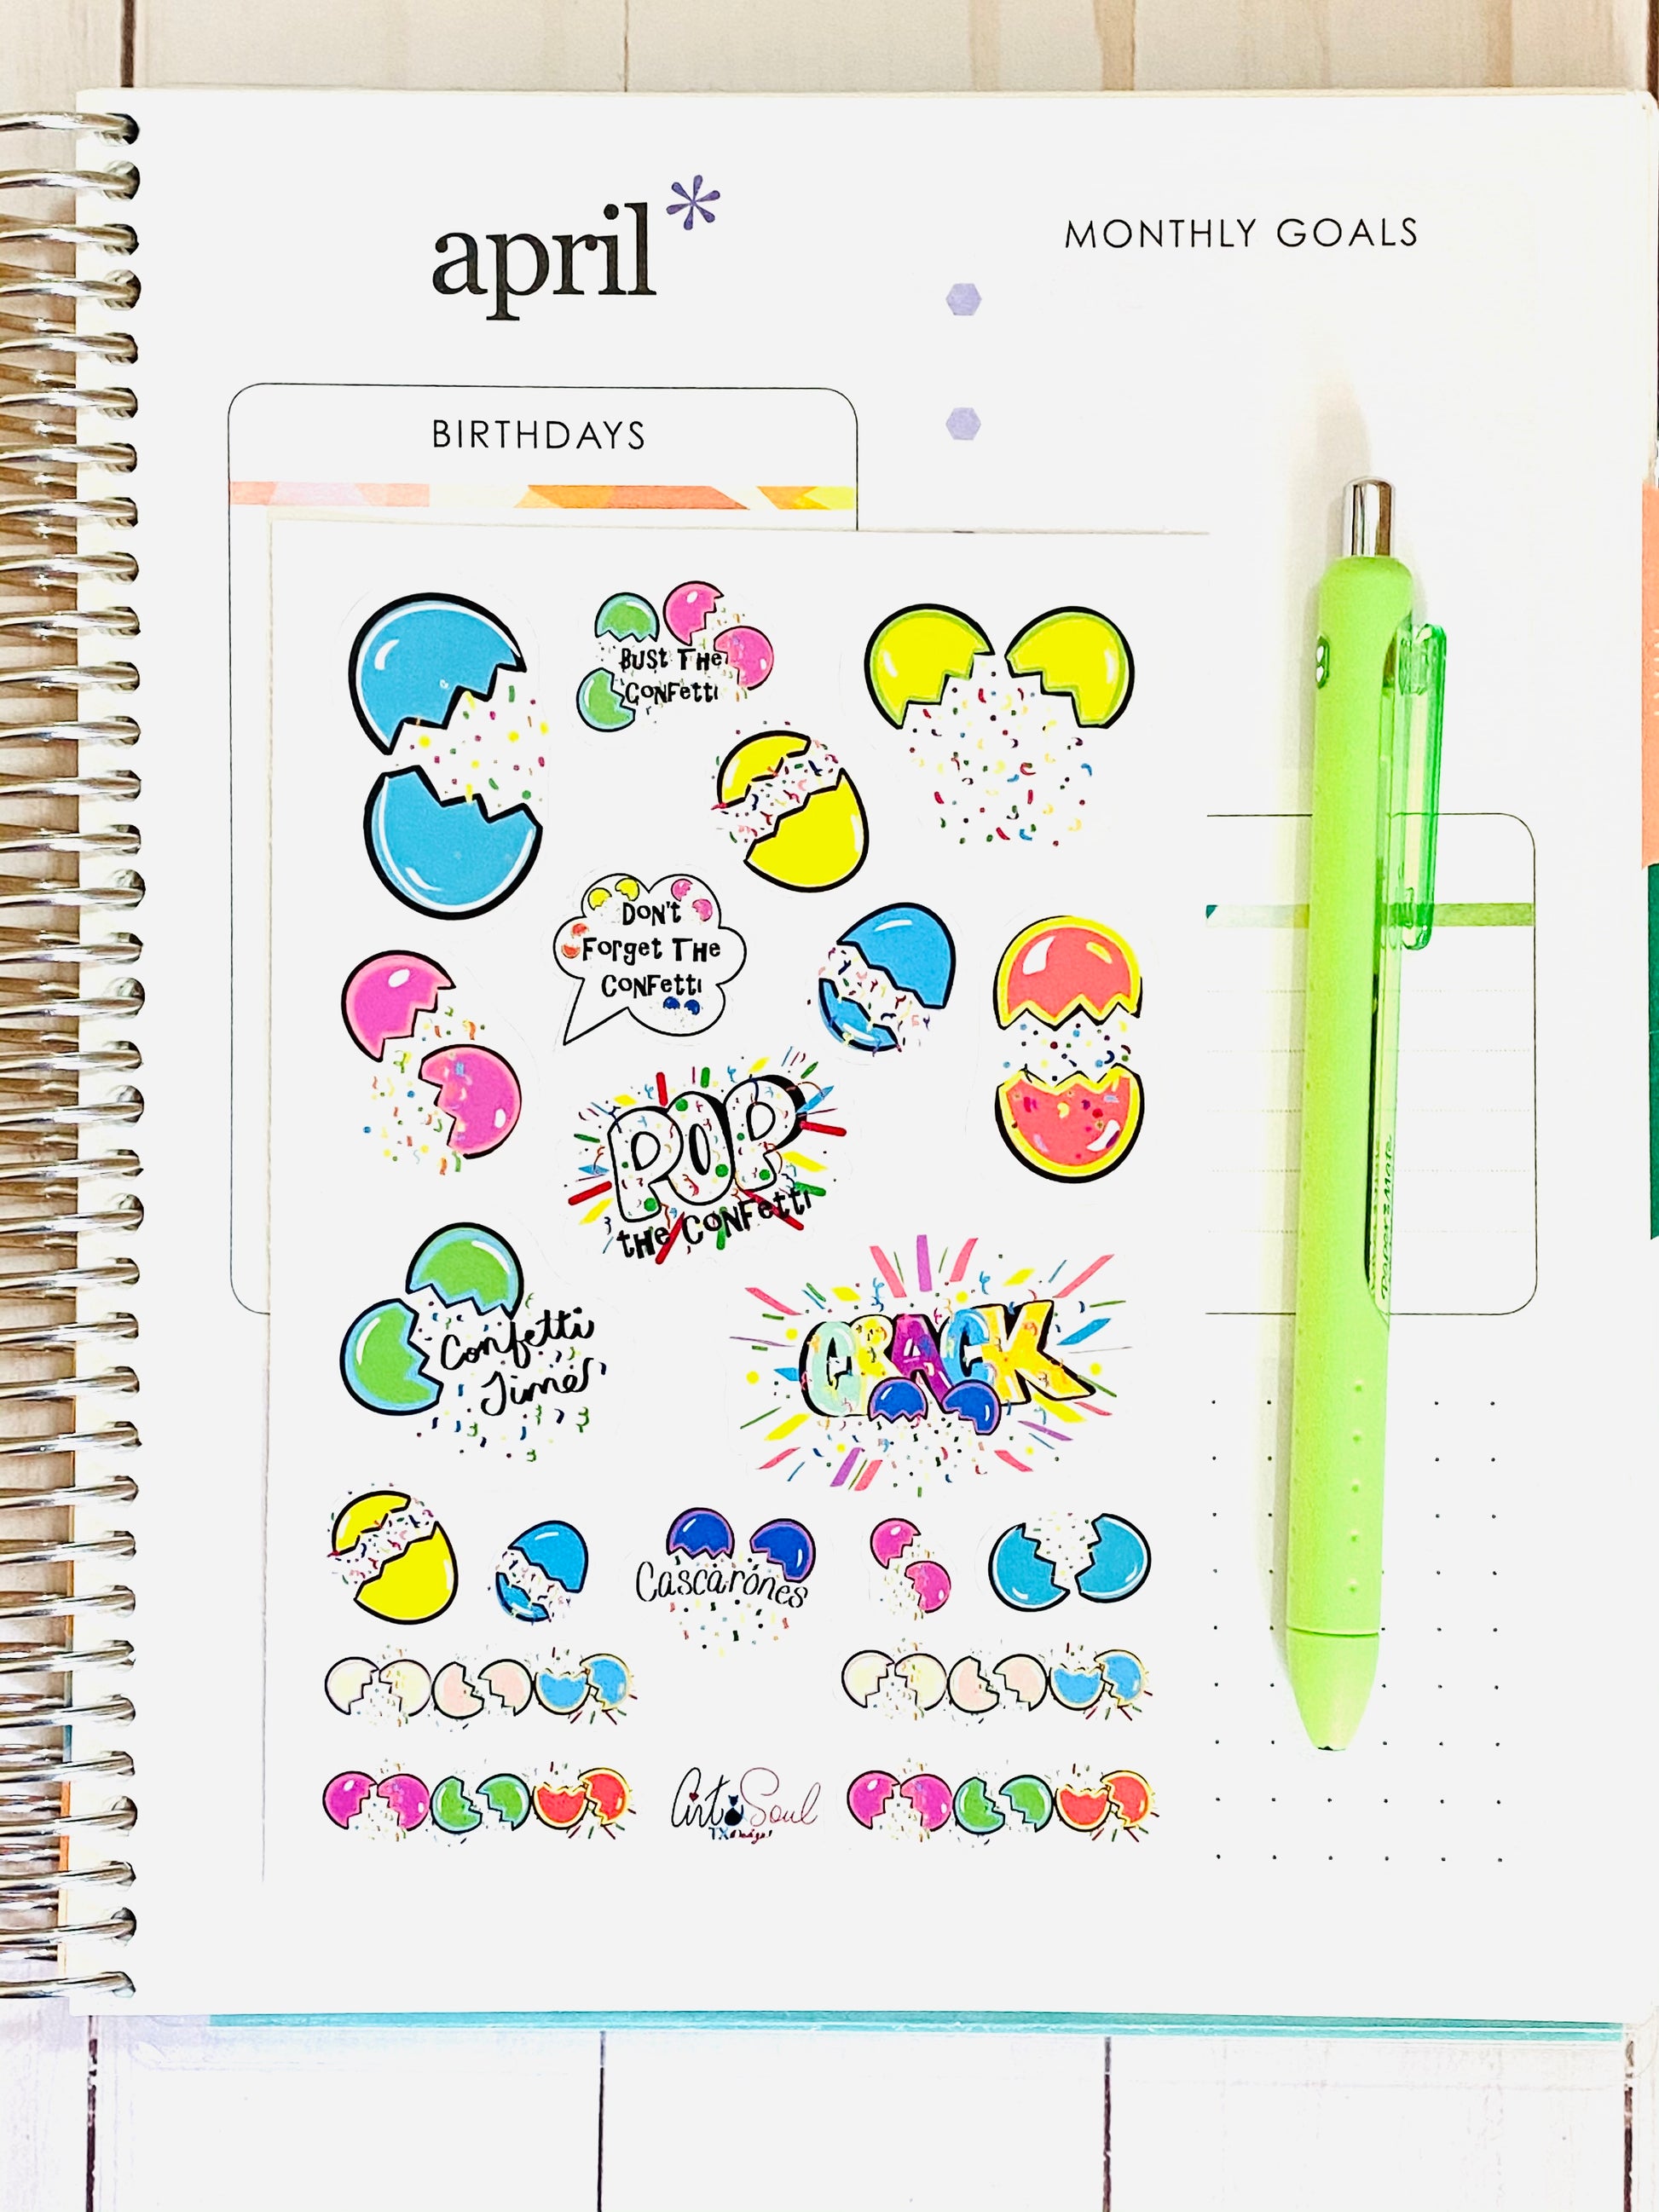 april*
MONTHLY GOALS
BIRTHDAYS
BUST THE
CONFETTI
DON'T
Forget THE
CONFETTI
POP
tHE CONFETTI
Confetti
Time!
CRACK
Cascarónes
Art Soul
TX Design!
PAPER MATE